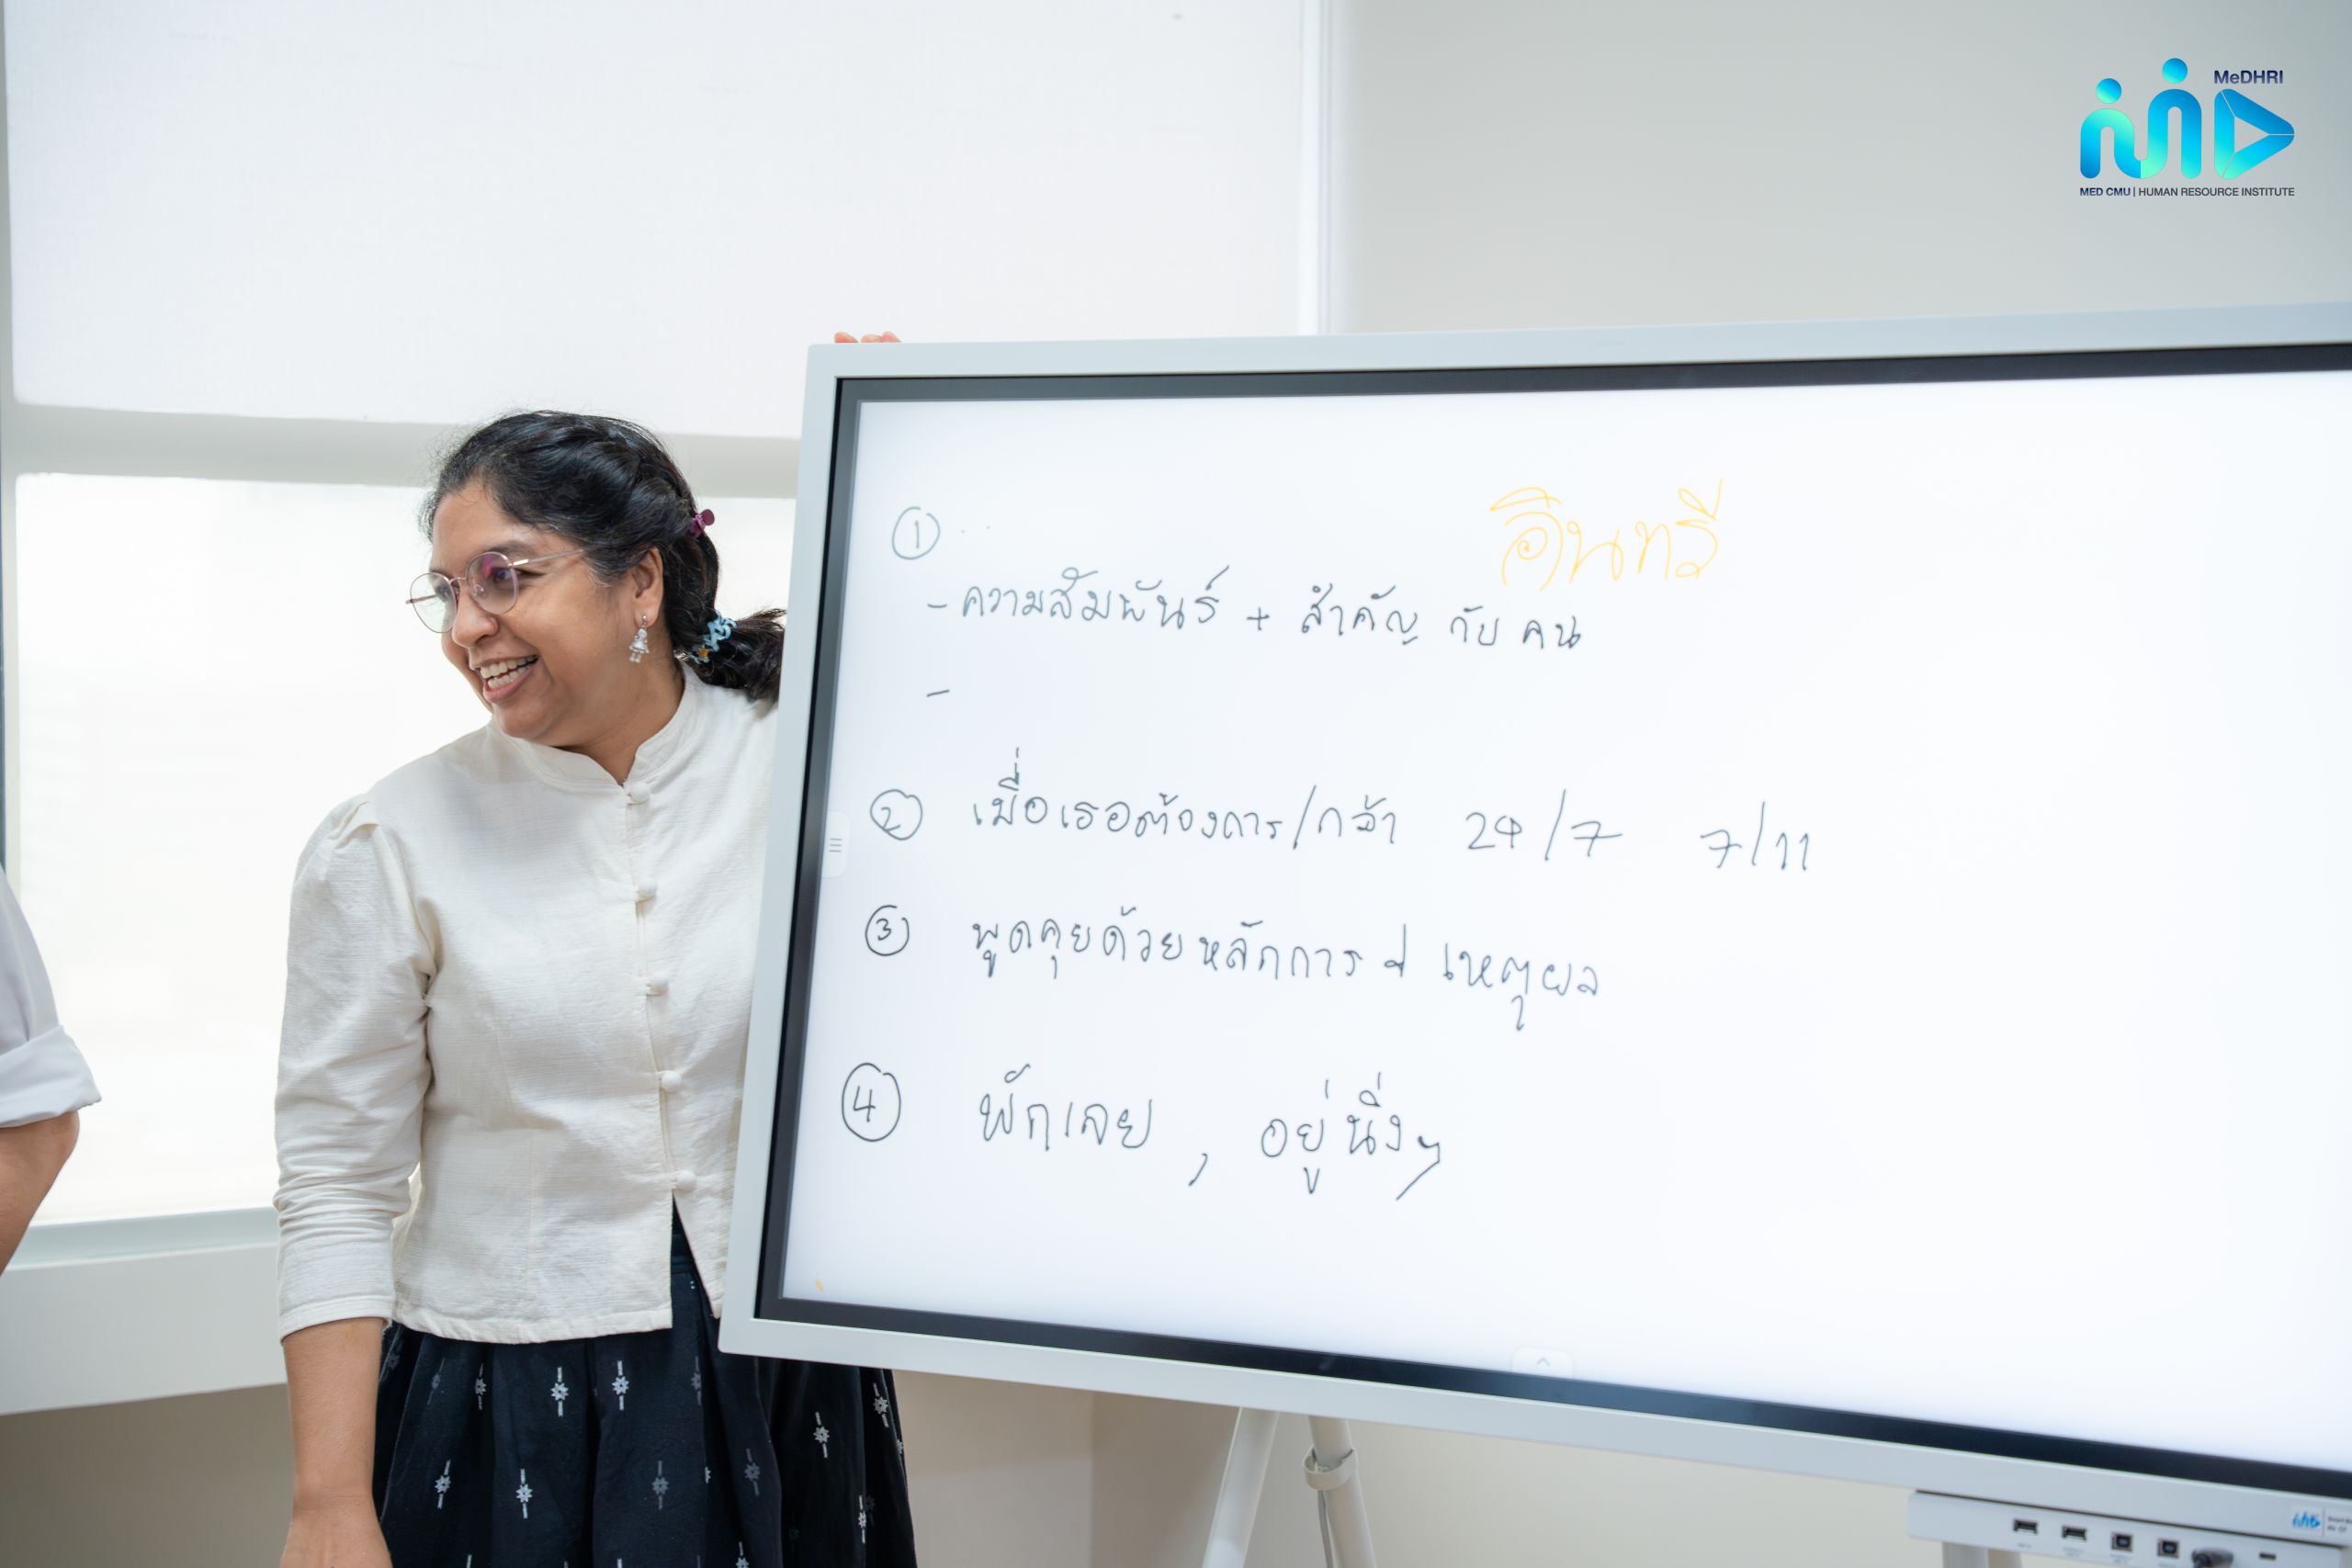 MeDHRI
MED CMU | HUMAN RESOURCE INSTITUTE
อินทรี
①
- ความสัมพันธ์ + สำคัญ กับ คน
-
② เมื่อเธอต้องการ/กล้า 24/7 7/11
③ พูดคุยด้วยหลักการ + เหตุผล
④ พักเลย , อยู่นิ่งๆ